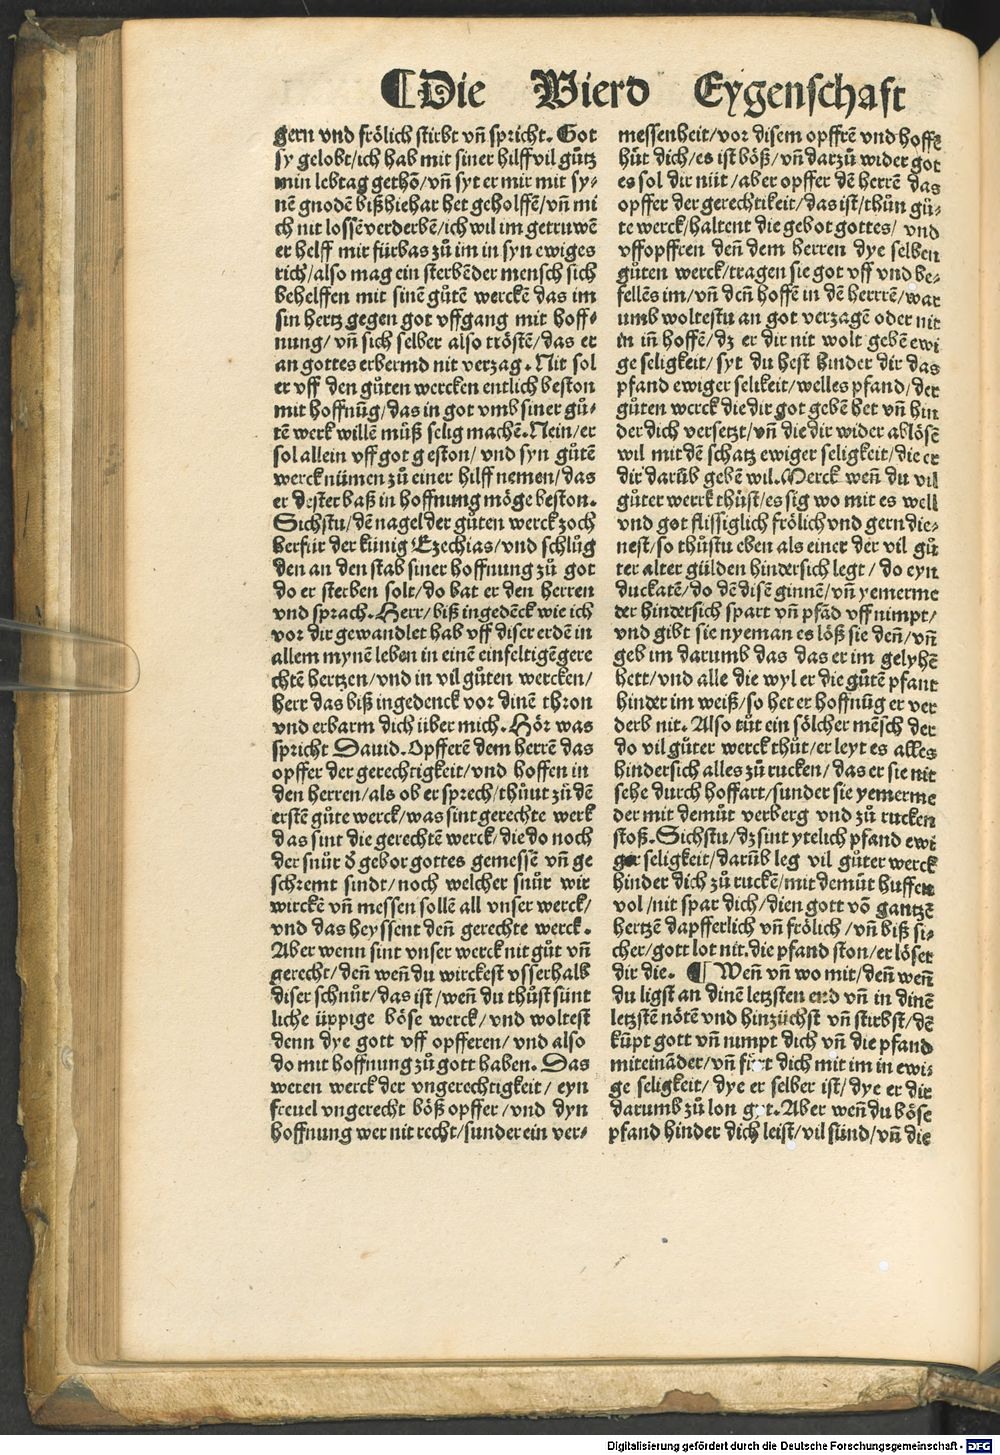 ¶ Die Vierd Eygenschaft
gern vnd frölich stirbt vñ spricht. Got
sy gelobt/ich hab mit siner hilff vil gůtz
min lebtag gethõ/vñ syt er mir mit sy-
nẽ gnodẽ bißhiehar het geholffẽ/vñ mi
ch nit lossẽ verderbẽ/ich wil im getruwẽ
er helff mir fürbas zů im in syn ewiges
rich/also mag ein sterbẽder mensch sich
behelffen mit sinẽ gůtẽ werckẽ das im
sin hertz gegen got vffgang mit hoff-
nung/ vñ sich selber also tröstẽ/das er
an gottes erbermd nit verzag. Nit sol
er vff den gůten wercken entlich beston
mit hoffnũg/das in got vmb siner gů-
tẽ werk willẽ můß selig machẽ. Nein/er
sol allein vff got geston/ vnd syn gůtẽ
werck nümen zů einer hilff nemen/das
er dester baß in hoffnung möge beston.
Sichstu/dẽ nagel der gůten werck zoch
herfür der künig Ezechias/vnd schlůg
den an den stab siner hoffnung zů got
do er sterben solt/do bat er den herren
vnd sprach. Herr/biß ingedẽck wie ich
vor dir gewandlet hab vff diser erdẽ in
allem mynẽ leben in einẽ einfeltigẽ gere
chtẽ hertzen/vnd in vil gůten wercken/
herr das biß ingedenck vor dinẽ thron
vnd erbarm dich über mich. Hör was
spricht Dauid. Opfferẽ dem herrẽ das
opffer der gerechtigkeit/vnd hoffen in
den herren/als ob er sprech/thůut zů dẽ
erstẽ gůte werck/was sint gerechte werk
das sint die gerechtẽ werck/die do noch
der snůr ð gebot gottes gemessẽ vñ ge
schremt sindt/noch welcher snůr wir
wirckẽ vñ messen sollẽ all vnser werck/
vnd das heyssent deñ gerechte werck.
Aber wenn sint vnser werck nit gůt vñ
gerecht/deñ weñ du wirckest vsserhalb
diser schnůr/das ist/weñ du thůst sünt
liche üppige böse werck/vnd woltest
denn dye gott vff opfferen/vnd also
do mit hoffnung zů gott haben. Das
weren werck der vngerechtigkeit/ eyn
freuel vngerecht böß opffer/vnd dyn
hoffnung wer nit recht/sunder ein ver-
messenheit/vor disem opffrẽ vnd hoffẽ
hůt dich/es ist böß/vñ darzů wider got
es sol dir nüt/aber opffer dẽ herrẽ das
opffer der gerechtikeit/das ist/thůn gů-
te werck/haltent die gebot gottes/ vnd
vffopffren deñ dem herren dye selben
gůten werck/tragen sie got vff vnd be-
fellẽs im/vñ deñ hoffẽ in dẽ herrrẽ/war
umb woltestu an got verzagẽ oder nit
in iñ hoffẽ/dz er dir nit wolt gebẽ ewi
ge seligkeit/ syt du hest hinder dir das
pfand ewiger selikeit/welles pfand/der
gůten werck die dir got gebẽ het vñ hin
der dich versetzt/vñ die dir wider ablösẽ
wil mit dẽ schatz ewiger seligkeit/die er
dir darũb gebẽ wil. Merck weñ du vil
gůter werrk thůst/es sig wo mit es well
vnd got flissiglich frölich vnd gern die-
nest/so thůstu eben als einer der vil gů
ter alter gülden hindersich legt/ do eyn
duckatẽ/do dẽ disẽ ginnẽ/vñ yemerme
der hindersich spart vñ pfãd vff nimpt/
vnd gibt sie nyeman es löß sie deñ/vñ
geb im darumb das das er im gelyhẽ
hett/vnd alle die wyl er die gůtẽ pfant
hinder im weiß/so het er hoffnũg er ver
derb nit. Also tůt ein sölcher mẽsch der
do vil gůter werck thůt/er leyt es alles
hindersich alles zů rucken/das er sie nit
sehe durch hoffart/sunder sie yemerme
der mit demůt verberg vnd zů rucken
stoß. Sichstu/dz sint ytelich pfand ewi
ger seligkeit/darũb leg vil gůter werck
hinder dich zů ruckẽ/mit demůt huffen
vol/nit spar dich/dien gott võ gantzẽ
hertzẽ dapfferlich vñ frölich/vñ biß si-
cher/gott lot nit die pfand ston/er löset
dir die. ¶ Weñ vñ wo mit/deñ weñ
du ligst an dinẽ letzsten end vñ in dinẽ
letzstẽ nötẽ vnd hinzüchst vñ stirbst/dẽ
küpt gott vñ nimpt dich vñ die pfand
miteinãder/vñ fürt dich mit im in ewi-
ge seligkeit/ dye er selber ist/dye er dir
darumb zů lon git. Aber weñ du böse
pfand hinder dich leist/vil sünd/vñ die
Digitalisierung gefördert durch die Deutsche Forschungsgemeinschaft - DFG